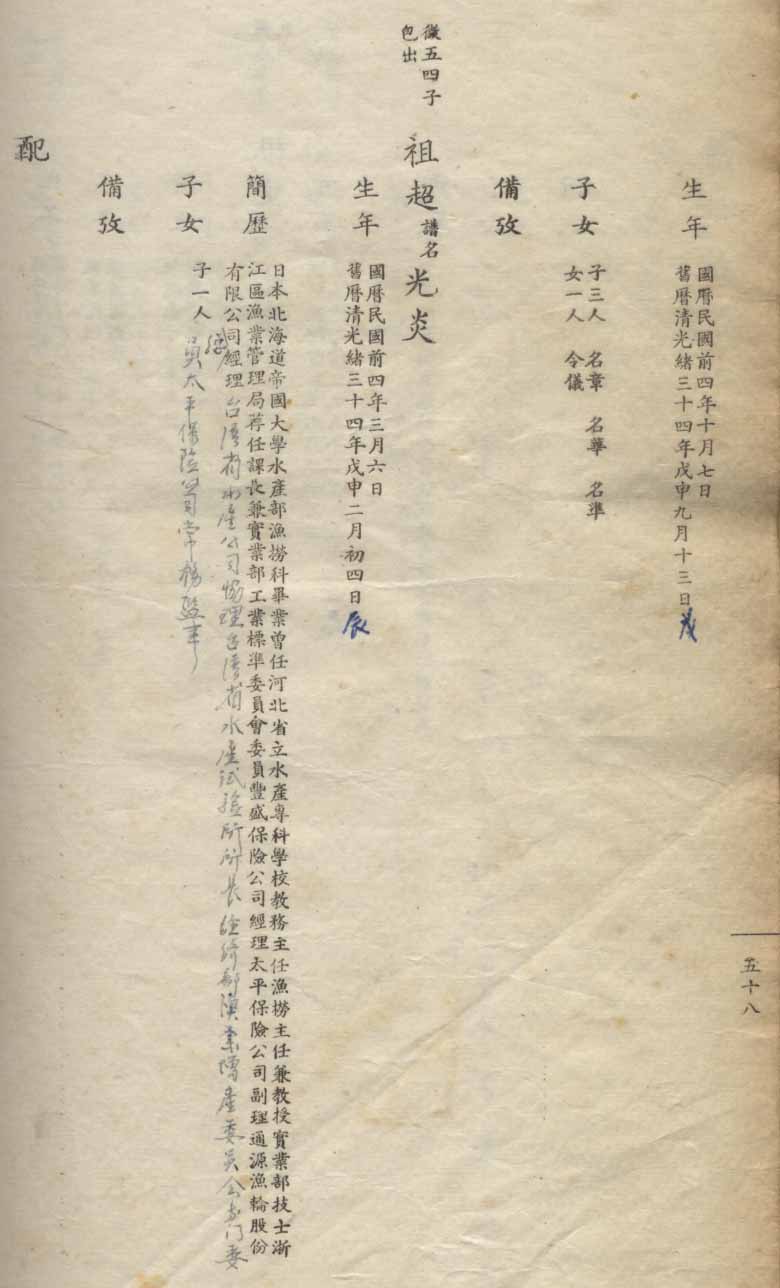 生年
國曆民國前四年十月七日
舊曆清光緒三十四年戊申九月十三日
子女
子三人 名章 名華 名準
女一人 令儀
備攷
徵五四子
包出
祖超 譜名 光炎
生年
國曆民國前四年三月六日
舊曆清光緒三十四年戊申二月初四日 辰
簡歷
日本北海道帝國大學水產部漁撈科畢業曾任河北省立水產專科學校教務主任漁撈主任兼教授實業部技士浙
江區漁業管理局荐任課長兼實業部工業標準委員會委員豐盛保險公司經理太平保險公司副理通源漁輪股份
有限公司經理 台灣省水產公司協理台灣省水產試驗所所長經濟部漁業增產委員會專門委
員太平保險公司常務監事
子女
子一人
備攷
配
五十八